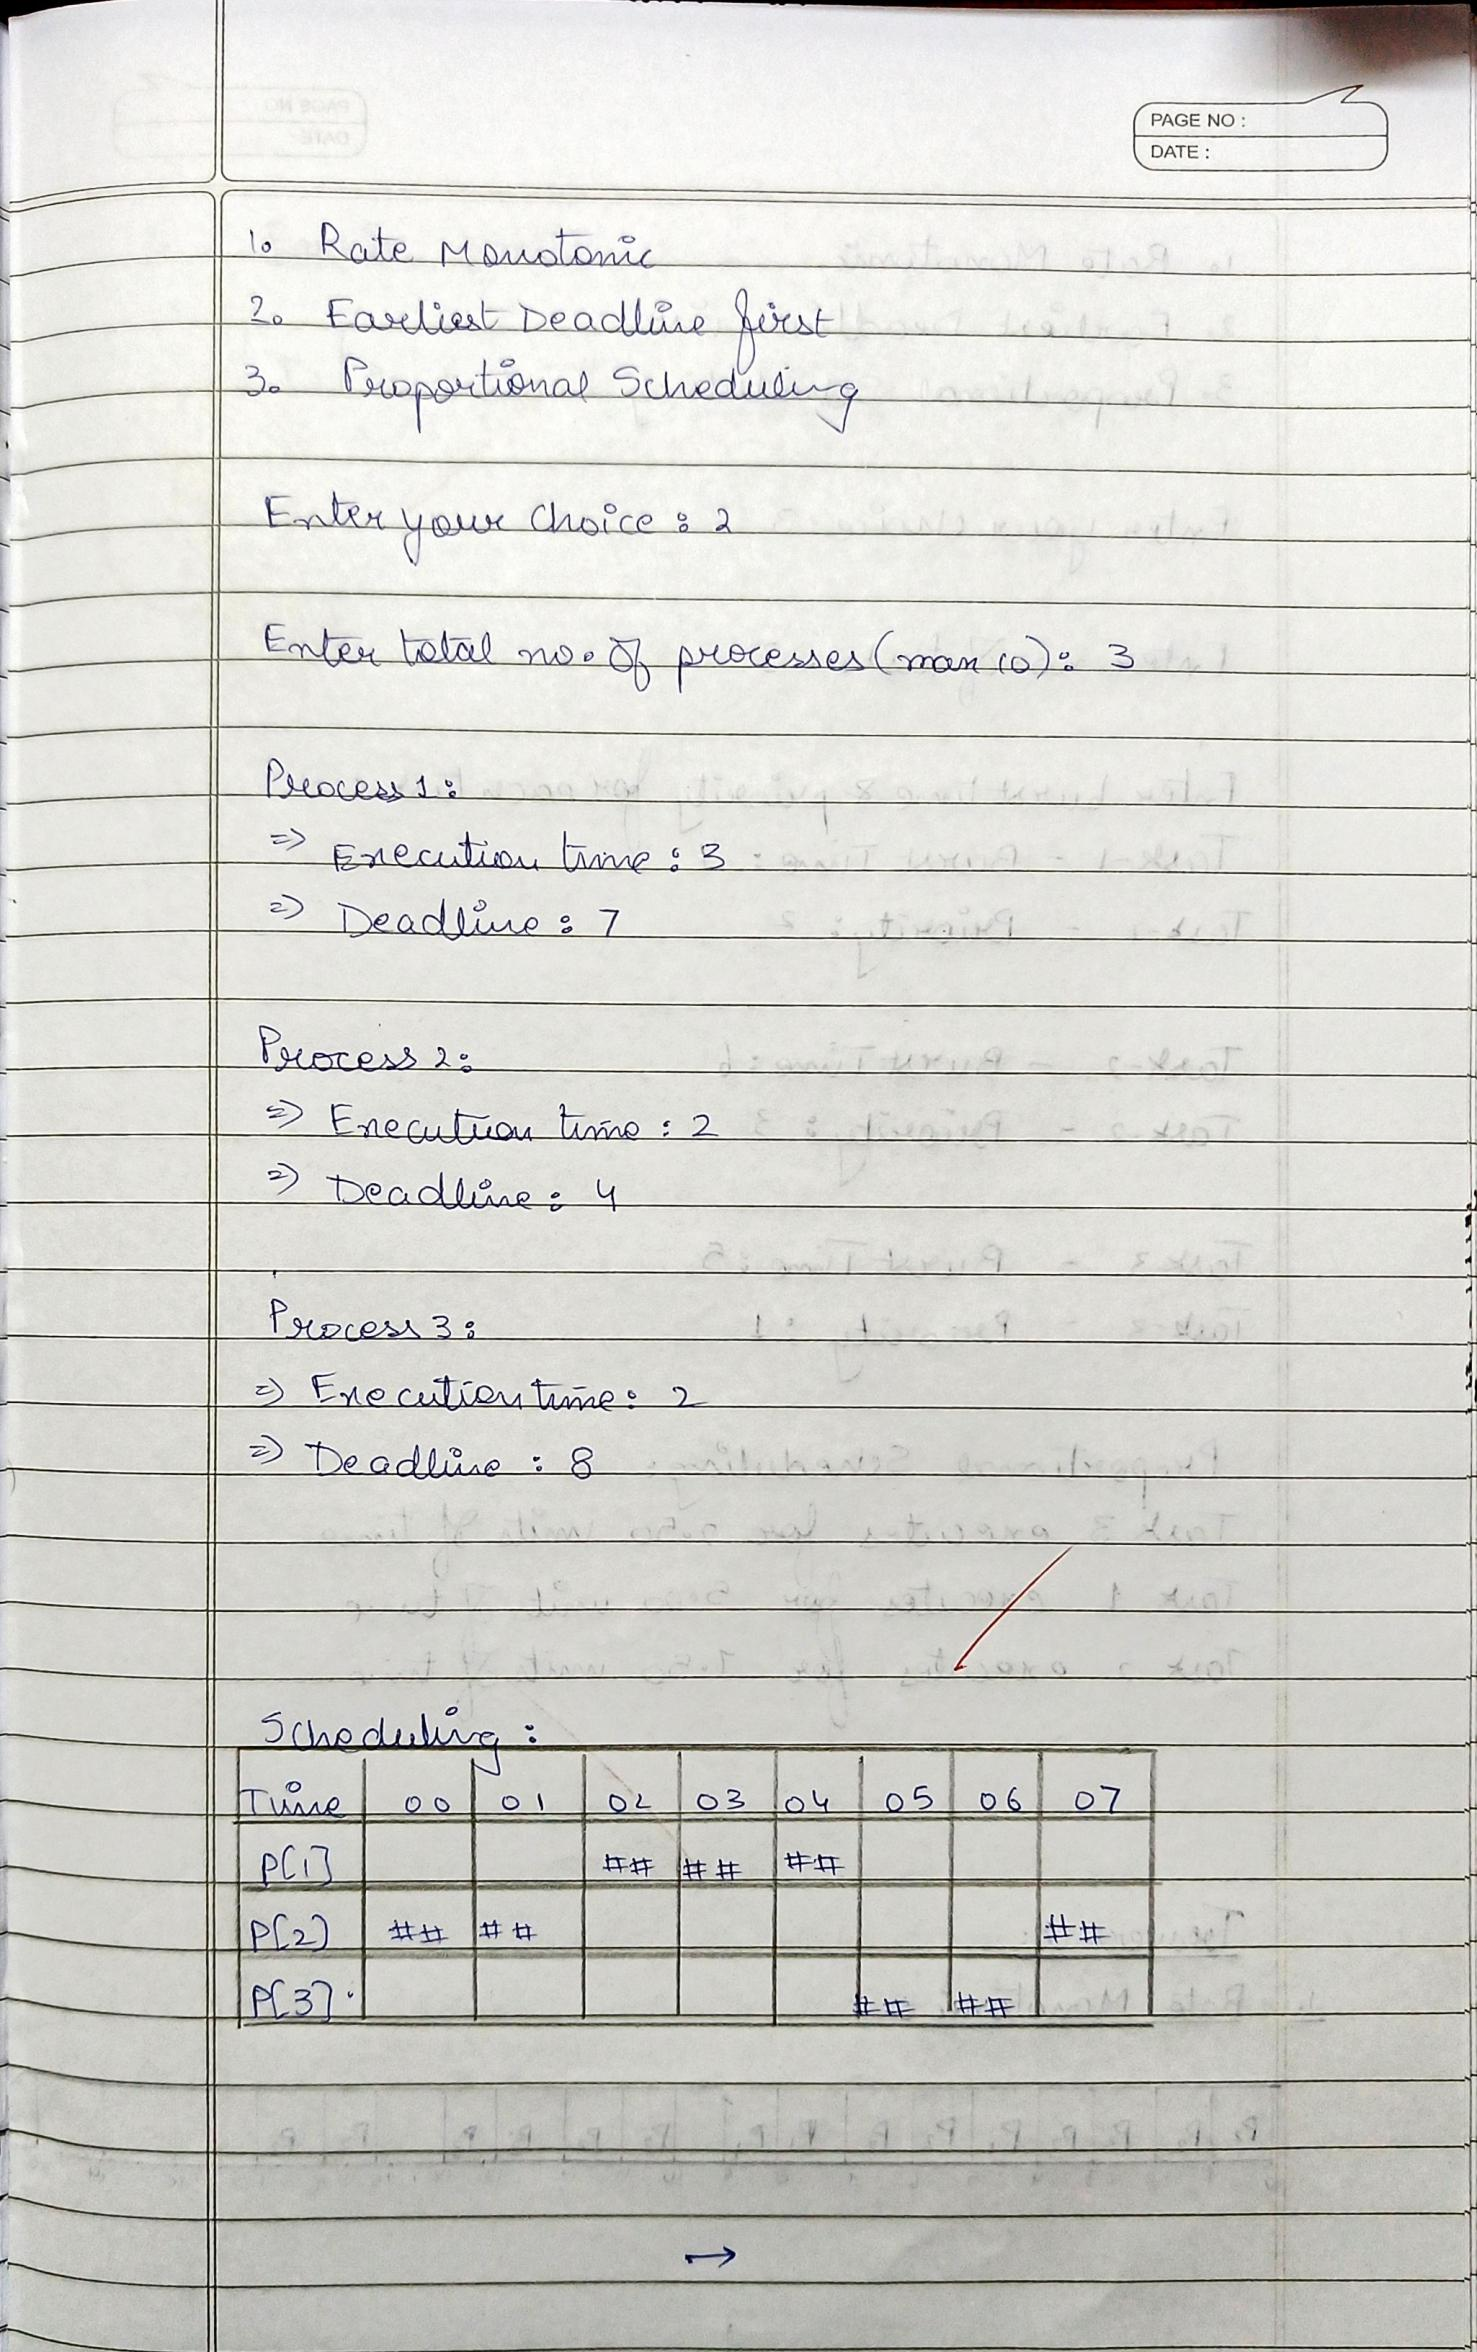 PAGE NO :
DATE :
1. Rate Monotonic
2. Earliest Deadline first
3. Proportional Scheduling
Enter your choice : 2
Enter total no. of processes (max 10) : 3
Process 1 :
=> Execution time : 3
=> Deadline : 7
Process 2 :
=> Execution time : 2
=> Deadline : 4
Process 3 :
=> Execution time : 2
=> Deadline : 8
Scheduling :
Time 00 01 02 03 04 05 06 07
P[1] ## ## ##
P[2] ## ## ##
P[3] ## ##
→